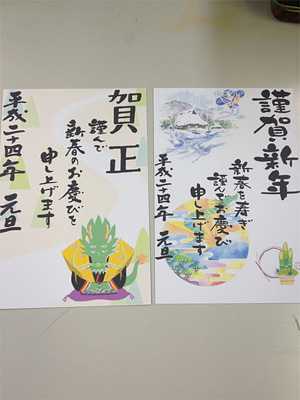 賀正
謹んで
新春のお慶びを
申し上げます
平成二十四年 元旦
謹賀新年
新春を寿ぎ
謹んでお慶び
申し上げます
平成二十四年 元旦